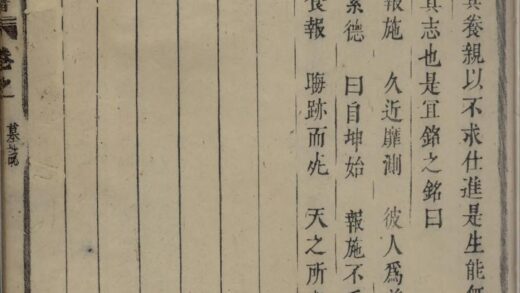 其養親以不求仕進是生能
其志也是宜銘之銘曰
報施 久近靡測 彼人爲
累德 曰自坤始 報施不
食報 晦跡而死 天之所
卷之
墓誌